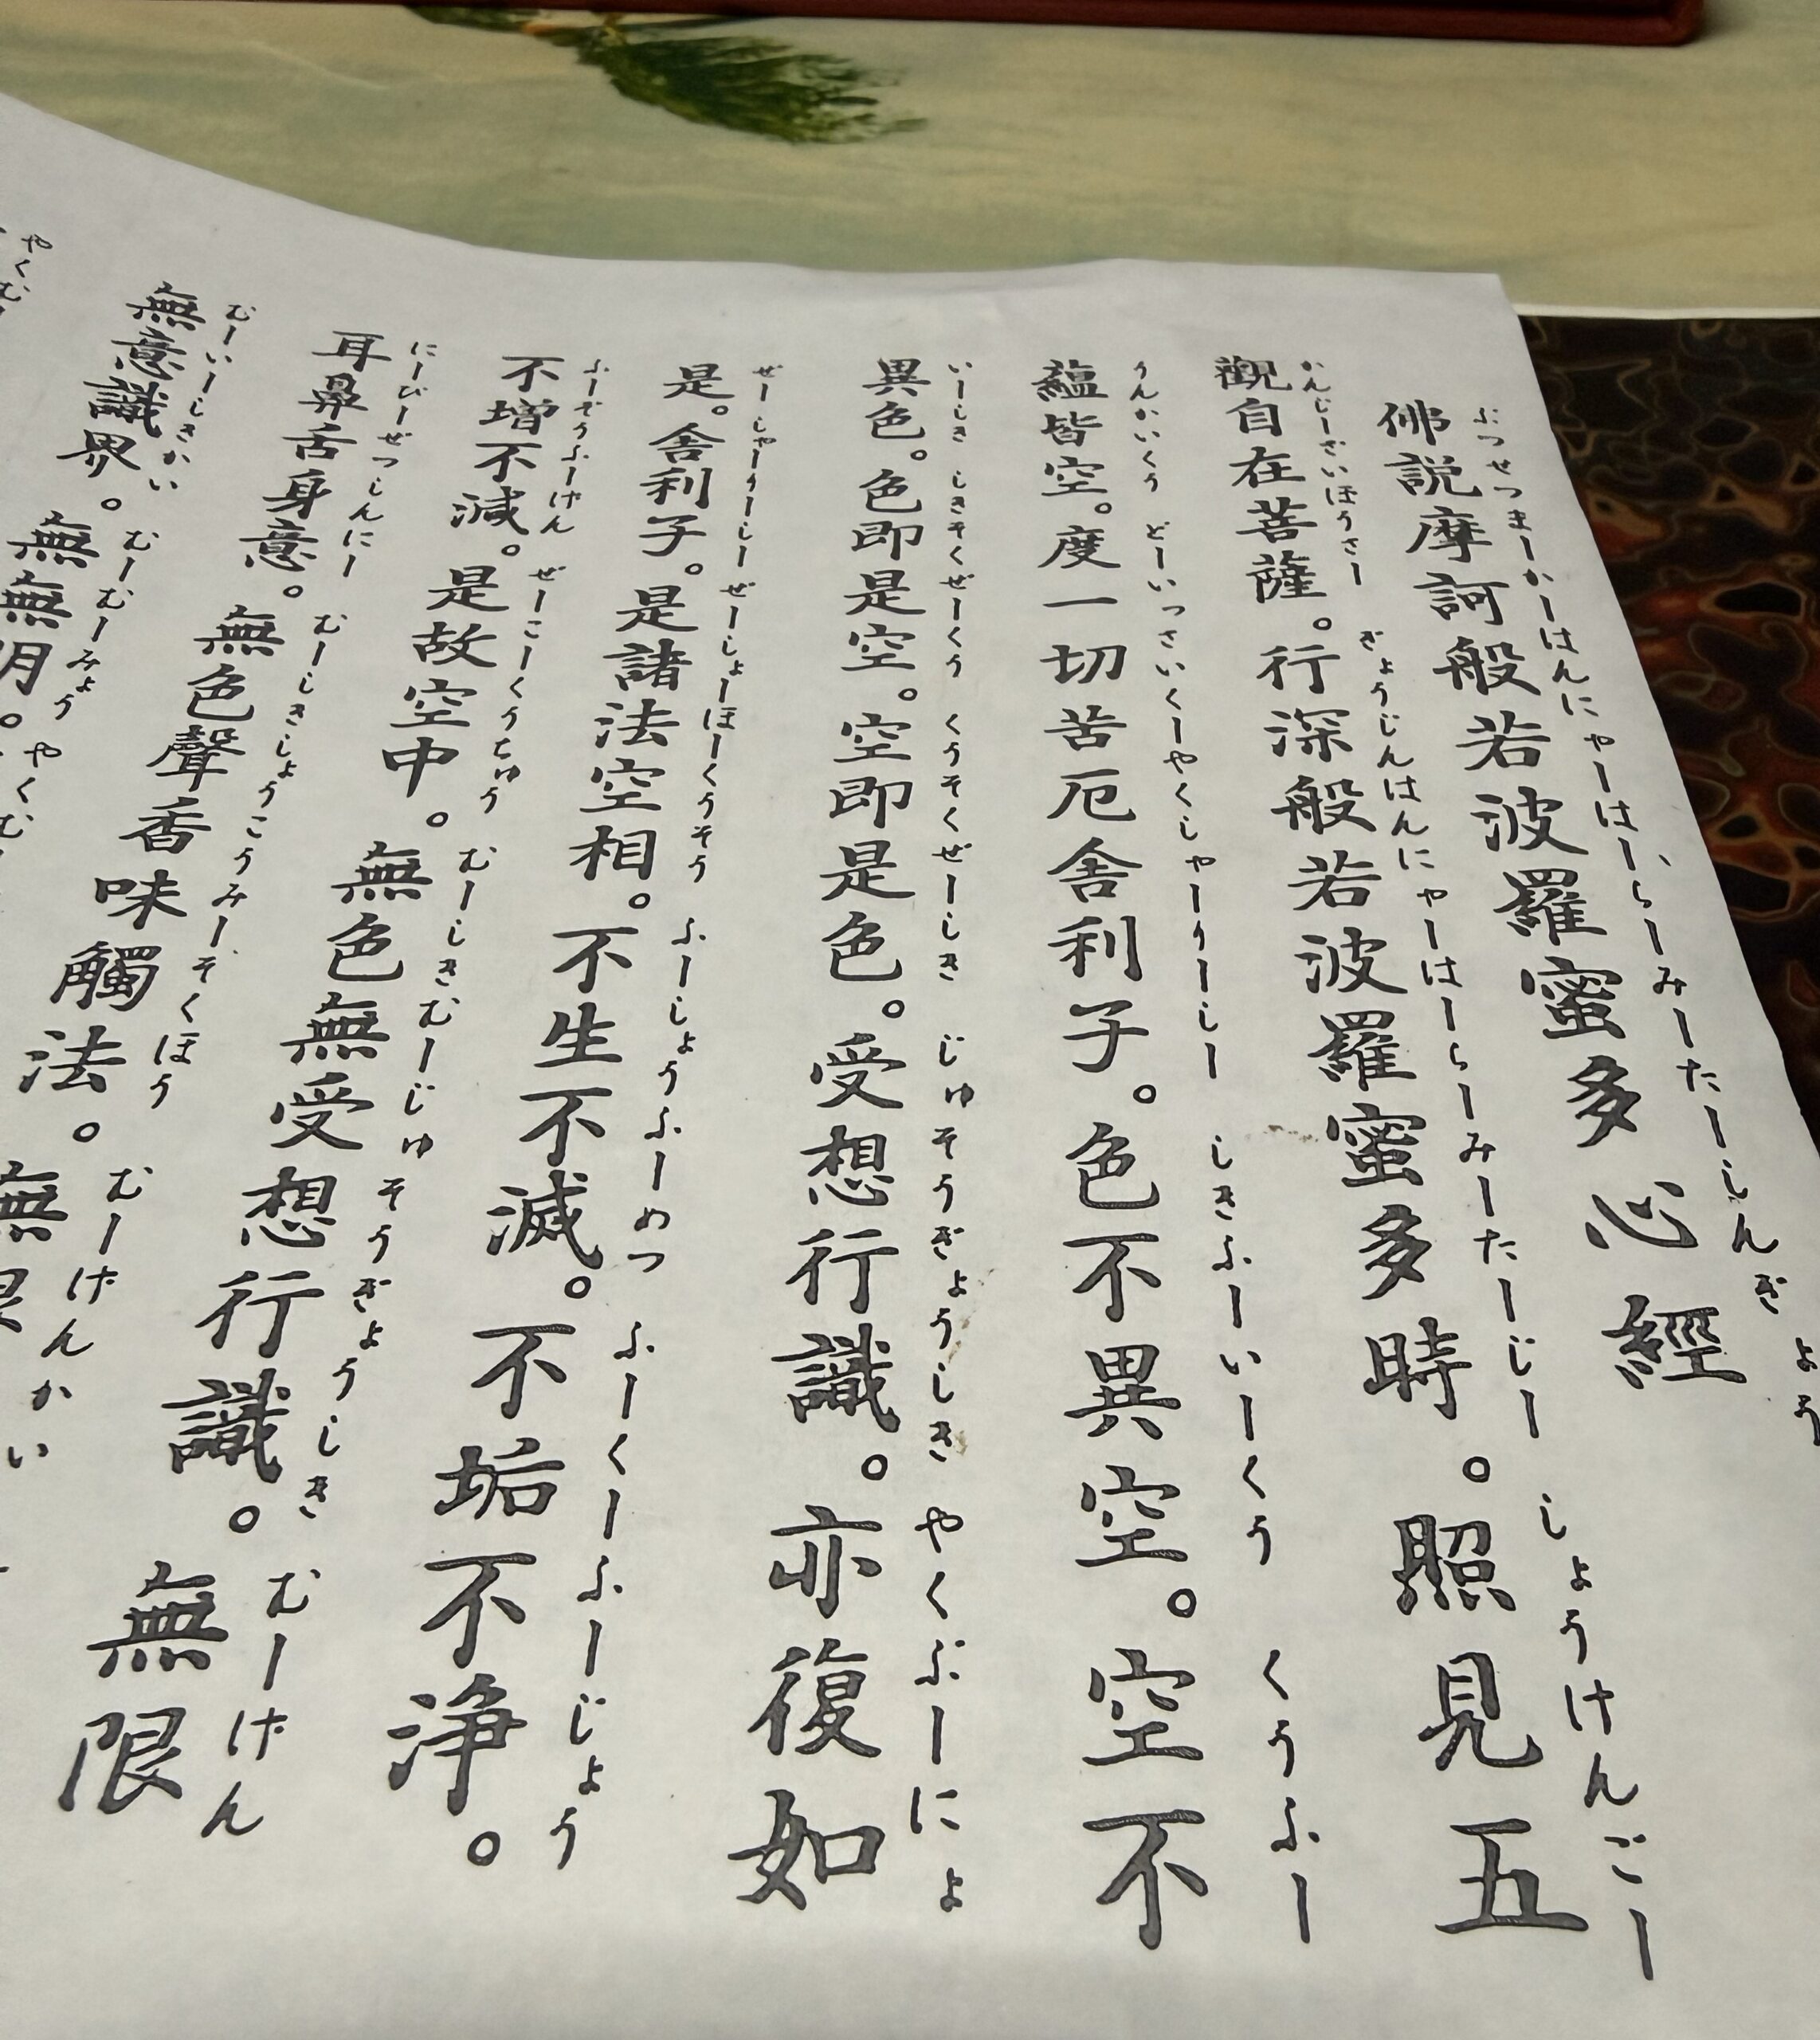 佛説摩訶般若波羅蜜多心經
ぶつせつまーかーはんにゃーはーらーみーたーしんぎょう
觀自在菩薩。行深般若波羅蜜多時。照見五
かんじーざいほうさー ぎょうじんはんにゃーはーらーみーたーじー しょうけんごー
蘊皆空。度一切苦厄舎利子。色不異空。空不
うんかいくう どーいっさいくーやくしゃーりーしー しきふーいーくう くうふー
異色。色即是空。空即是色。受想行識。亦復如
いーしき しきそくぜーくう くうそくぜーしき じゅそうぎょうしき やくぶーにょ
是。舎利子。是諸法空相。不生不滅。不垢不浄。
ぜーしゃーりーしー ぜーしょーほーくうそう ふーしょうふーめつ ふーくーふーじょう
不増不減。是故空中。無色無受想行識。無限
ふーぞうふーげん ぜーこーくうちゅう むーしきむーじゅそうぎょうしき むーげん
耳鼻舌身意。無色聲香味觸法。無
にーびーぜつしんにー むーしきしょうこうみーそくほう むーげんかい
無意識界。無無明。
むーいーしきかい むーむーみょう やくむ
やくむ